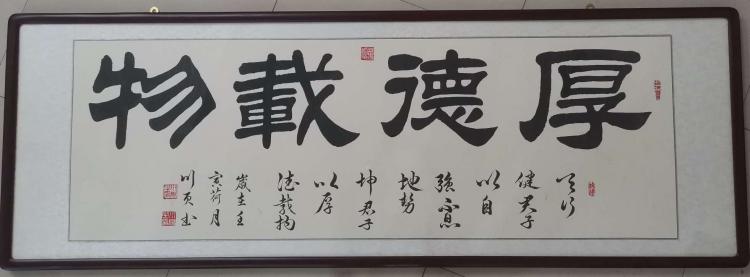 厚德載物
天行
健君子
以自
強不息
地勢
坤君子
以厚
德載物
歲在壬
寅荷月
川页书